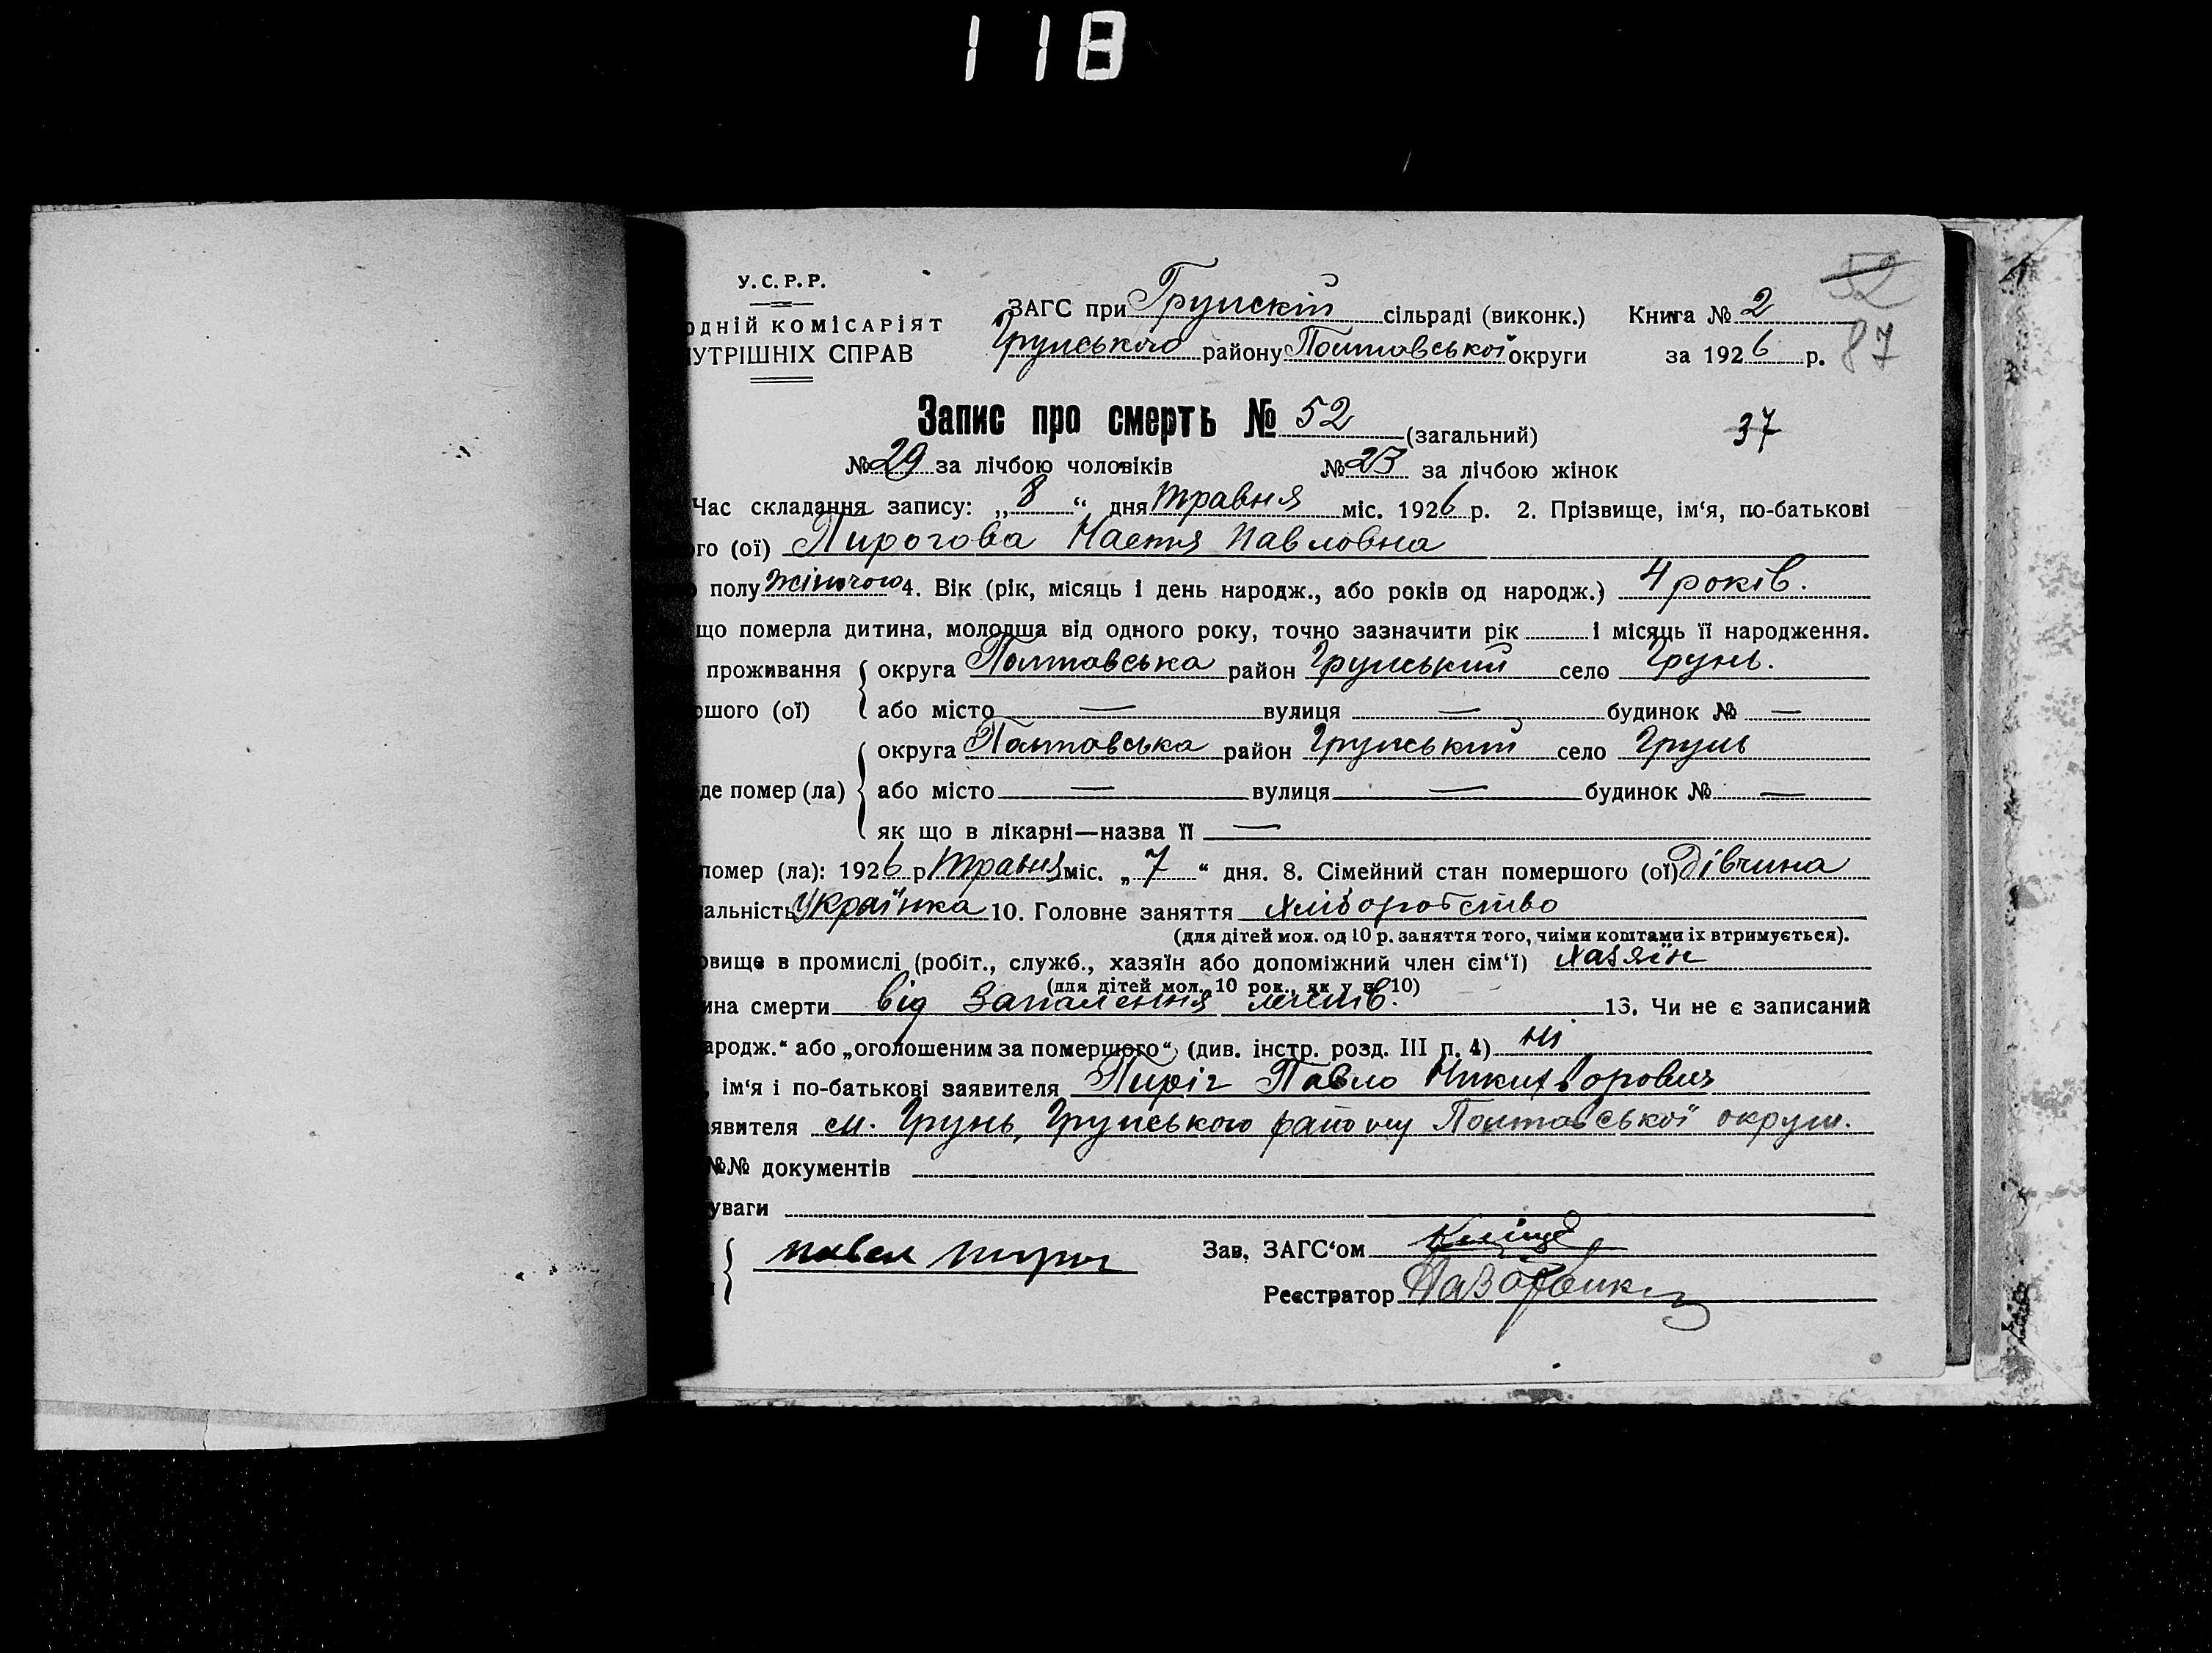 118
У.С.Р.Р.
одній комісаріят
нутрішніх справ
ЗАГС при Грунскій сільраді (виконк.) Книга № 2
Грунського району Полтавської округи за 1926 р.
52
87
37
Запис про смерть № 52 (загальний)
№ 29 за лічбою чоловіків № 23 за лічбою жінок
Час складання запису: „8“ дня травня міс. 1926 р. 2. Прізвище, ім‘я, по-батькові
ого (ої) Пирогова Настя Павловна
о полу жіночого 4. Вік (рік, місяць і день народж., або років од народж.) 4 років.
що померла дитина, молодша від одного року, точно зазначити рік і місяць її народження.
проживання { округа Полтавська район Грунський село Грунь.
ршого (ої) або місто — вулиця — будинок № —
округа Полтавська район Грунський село Грунь
де помер (ла) { або місто — вулиця — будинок № —
як що в лікарні—назва її —
помер (ла): 1926 р. травня міс. „7“ дня. 8. Сімейний стан помершого (ої) Дівчина
альність Українка 10. Головне заняття Хліборобство
(для дітей мол. од 10 р. заняття того, чиїми коштами їх втримується).
овище в промислі (робіт., служб., хазяїн або допоміжний член сім‘ї) Хазяїн
(для дітей мол. 10 рок., як у п. 10)
ина смерти від Запалення легенів. 13. Чи не є записаний
ародж.“ або „оголошеним за помершого“ (див. інстр. розд. III п. 4) Ні
, ім‘я і по-батькові заявителя Пиріг Павло Никифорович
явителя м. Грунь, Грунського району Полтавської округи.
№№ документів
уваги
{ павел пирог Зав. ЗАГС‘ом
Реєстратор